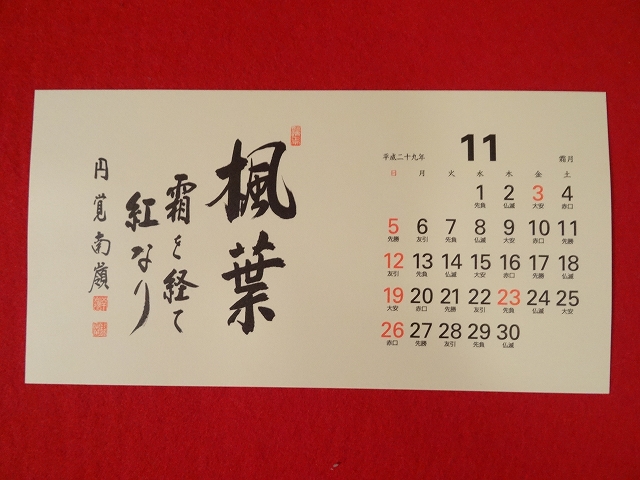 楓葉
霜を経て
紅なり
円覚南嶺
平成二十九年 11 霜月
日 月 火 水 木 金 土
1 2 3 4
先負 仏滅 大安 赤口
5 6 7 8 9 10 11
先勝 友引 先負 仏滅 大安 赤口 先勝
12 13 14 15 16 17 18
友引 先負 仏滅 大安 赤口 先勝 仏滅
19 20 21 22 23 24 25
大安 赤口 先勝 友引 先負 仏滅 大安
26 27 28 29 30
赤口 先勝 友引 先負 仏滅